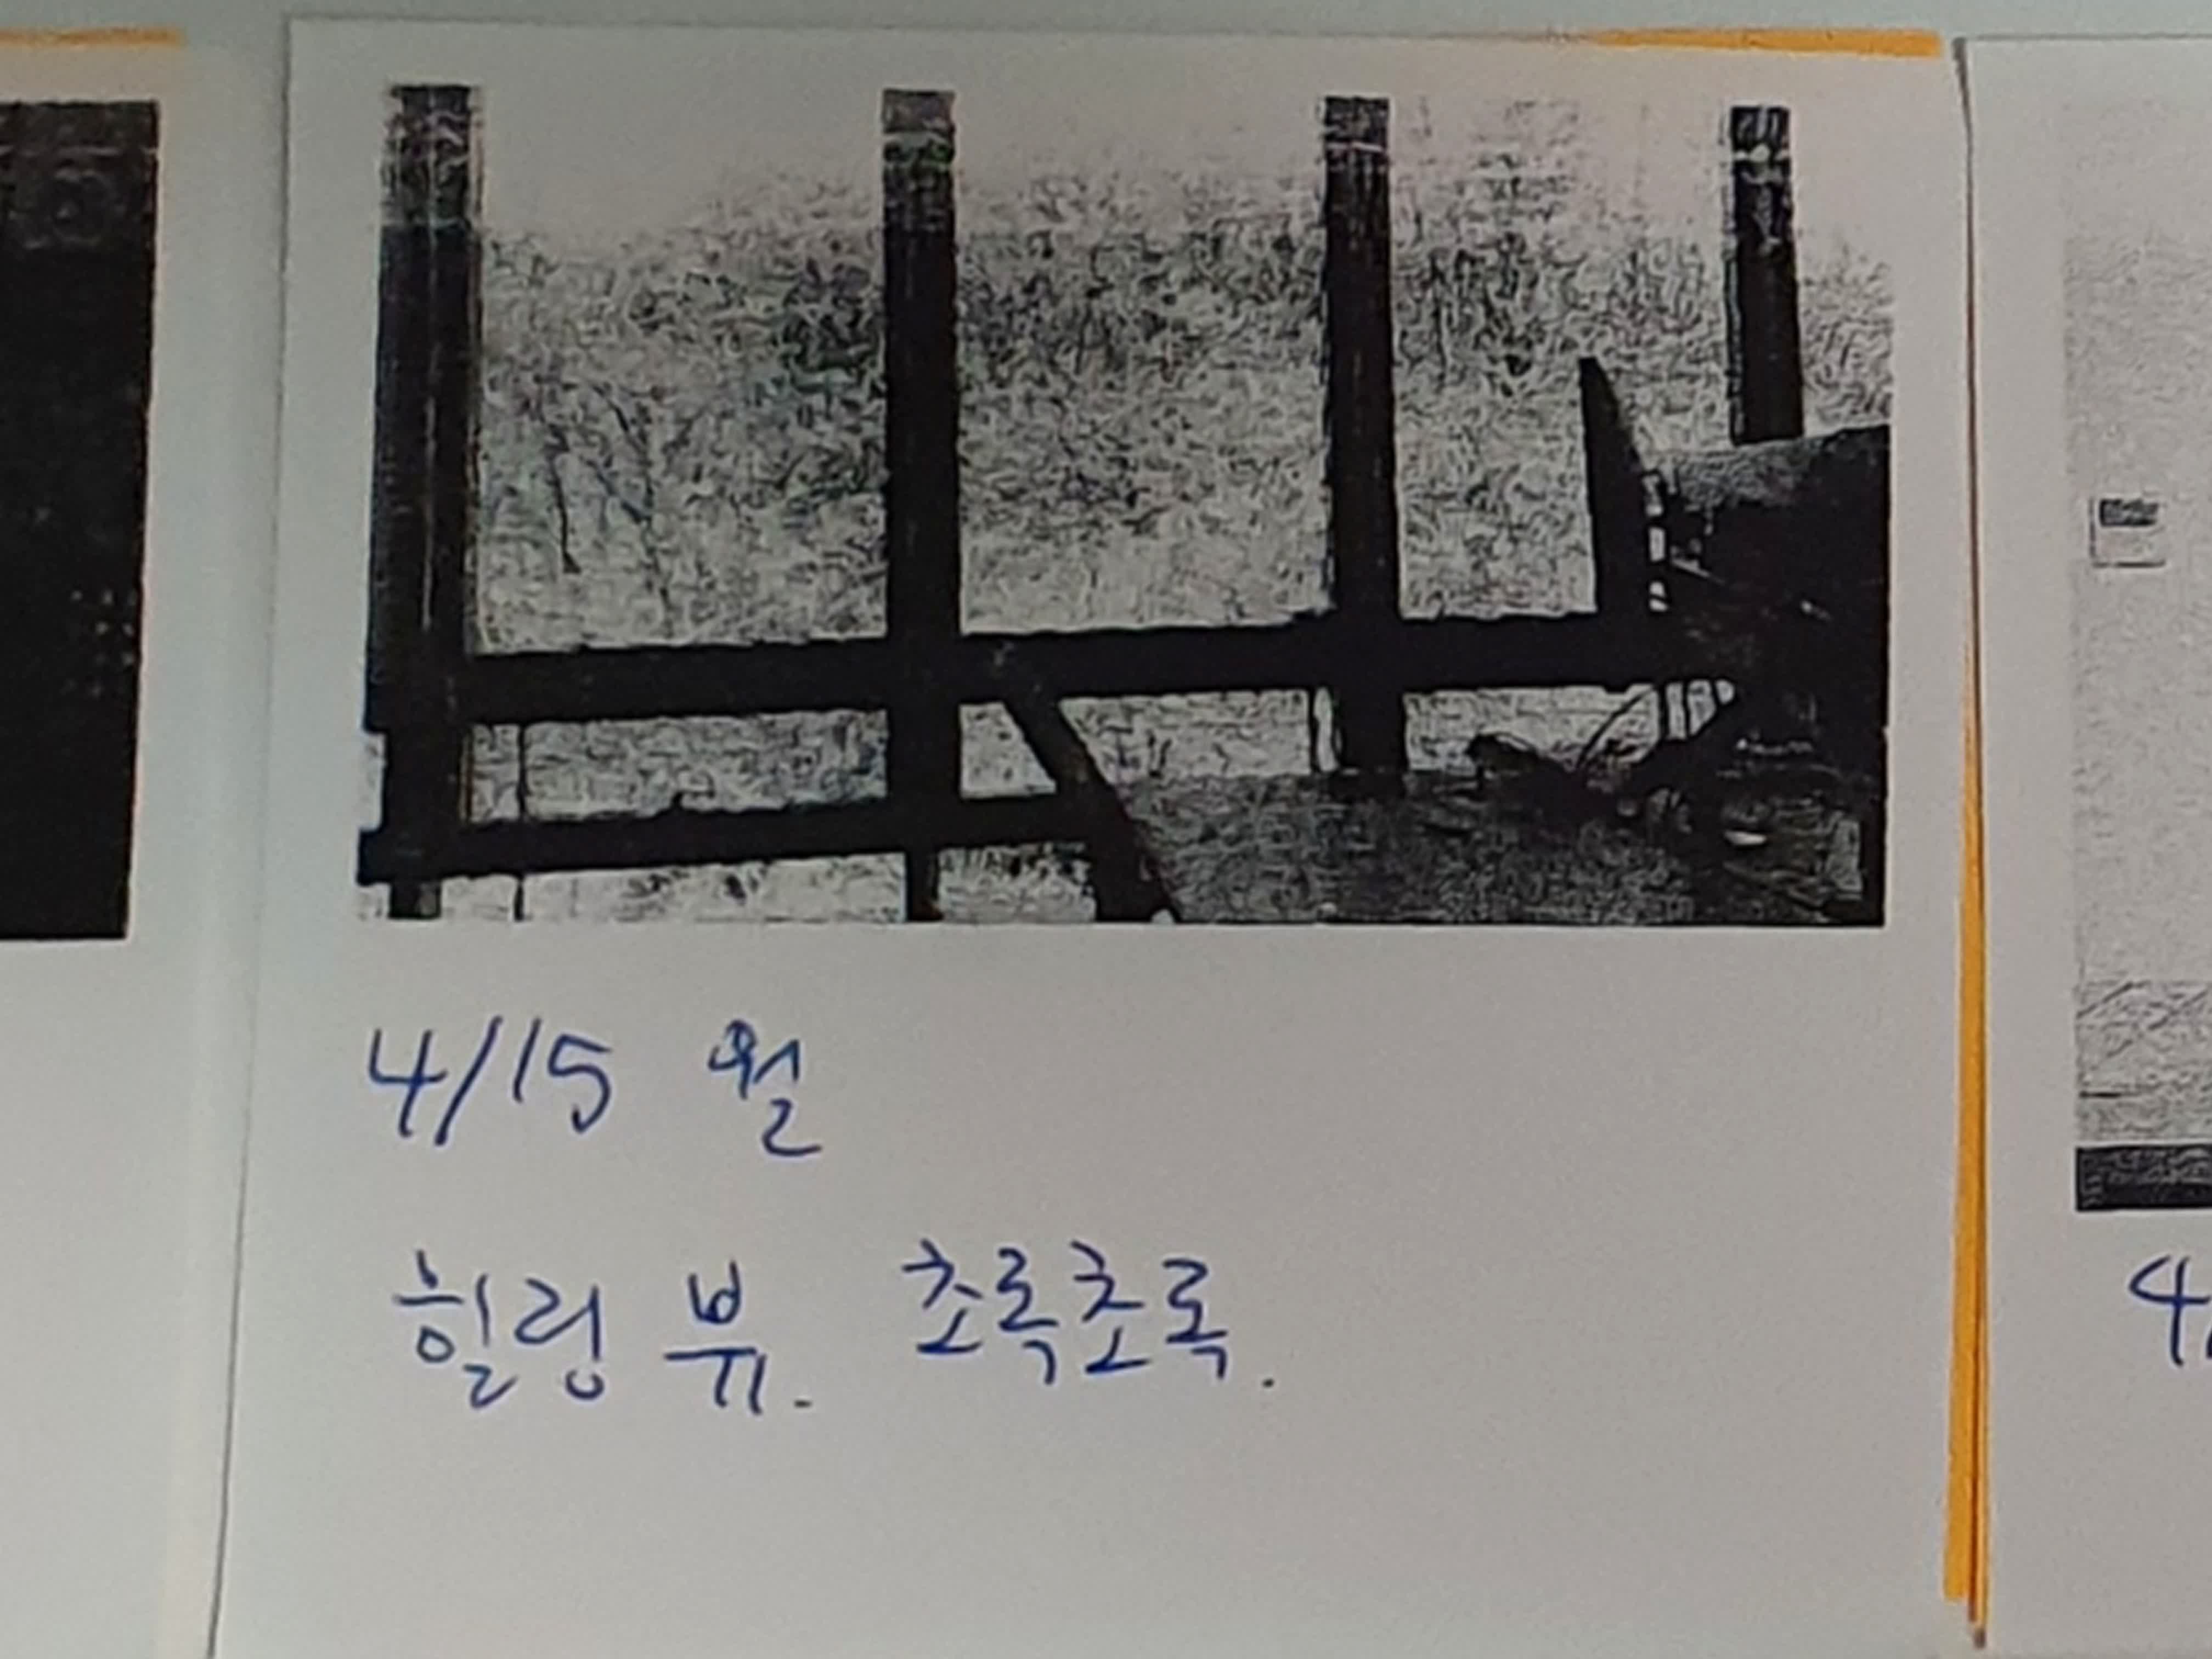 4/15 월
힐링 뷰. 초록초록.
4/